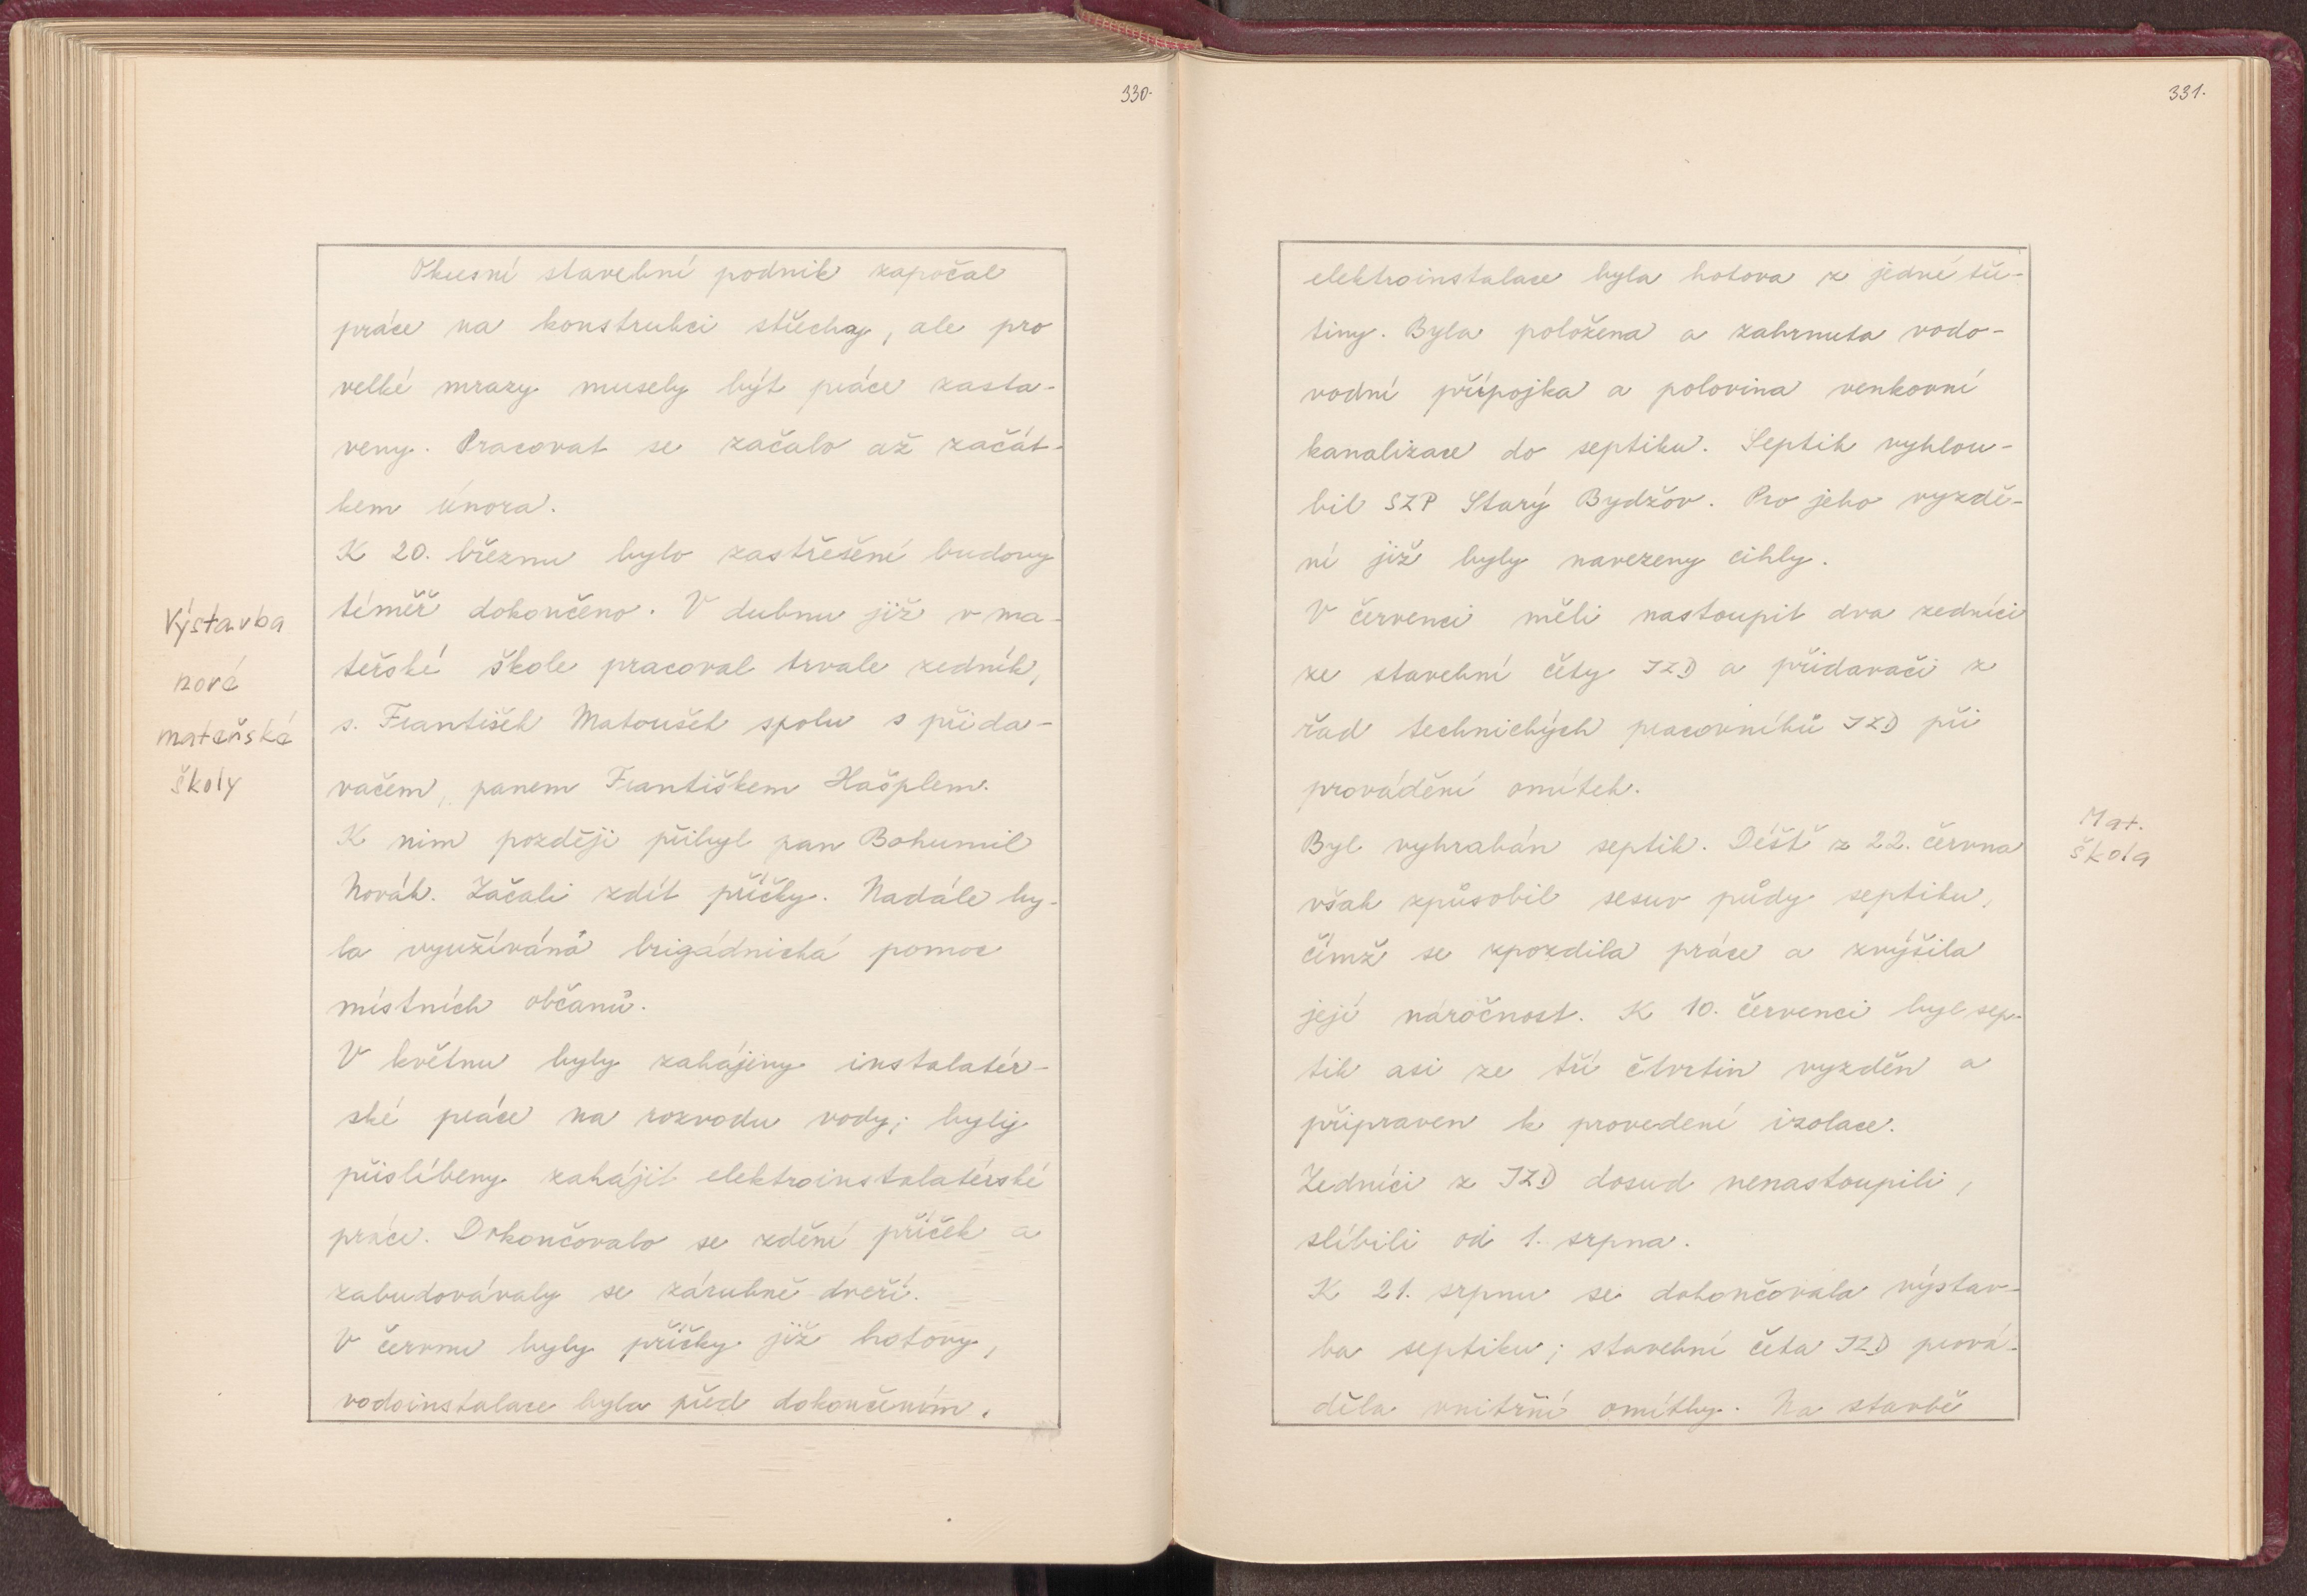 330.
Okresní stavební podnik započal
práce na konstrukci střechy, ale pro
velké mrazy musely být práce zasta-
veny. Pracovat se začalo až začát-
kem února.
K 20. březnu bylo zastřešení budovy
téměř dokončeno. V dubnu již v ma-
teřské škole pracoval trvale zedník,
s. František Matoušek spolu s přida-
vačem, panem Františkem Hašplem.
K nim později přibyl pan Bohumil
Novák. Začali zdít příčky. Nadále by-
la využívána brigádnická pomoc
místních občanů.
V květnu byly zahájeny instalatér-
ské práce na rozvodu vody; byly
přislíbeny zahájit elektroinstalatérské
práce. Dokončovalo se zdění příček a
zabudovávaly se zárubně dveří.
V červnu byly příčky již hotovy,
vodoinstalace byla před dokončením.
Výstavba
nové
mateřské
školy
331.
elektroinstalace byla hotova z jedné tře-
tiny. Byla položena a zahrnuta vodo-
vodní přípojka a polovina venkovní
kanalizace do septiku. Septik vyhlou-
bil SZP Starý Bydžov. Pro jeho vyzdě-
ní již byly navezeny cihly.
V červenci měli nastoupit dva zedníci
ze stavební čety JZD a přidavači z
řad technických pracovníků JZD při
provádění omítek.
Byl vyhrabán septik. Déšť z 22. června
však způsobil sesuv půdy septiku,
čímž se zpozdila práce a zvýšila
její náročnost. K 10. červenci byl sep-
tik asi ze tří čtvrtin vyzděn a
připraven k provedení izolace.
Zedníci z JZD dosud nenastoupili,
slíbili od 1. srpna.
K 21. srpnu se dokončovala výstav-
ba septiku; stavební četa JZD prová-
děla vnitřní omítky. Na stavbě
Mat.
škola